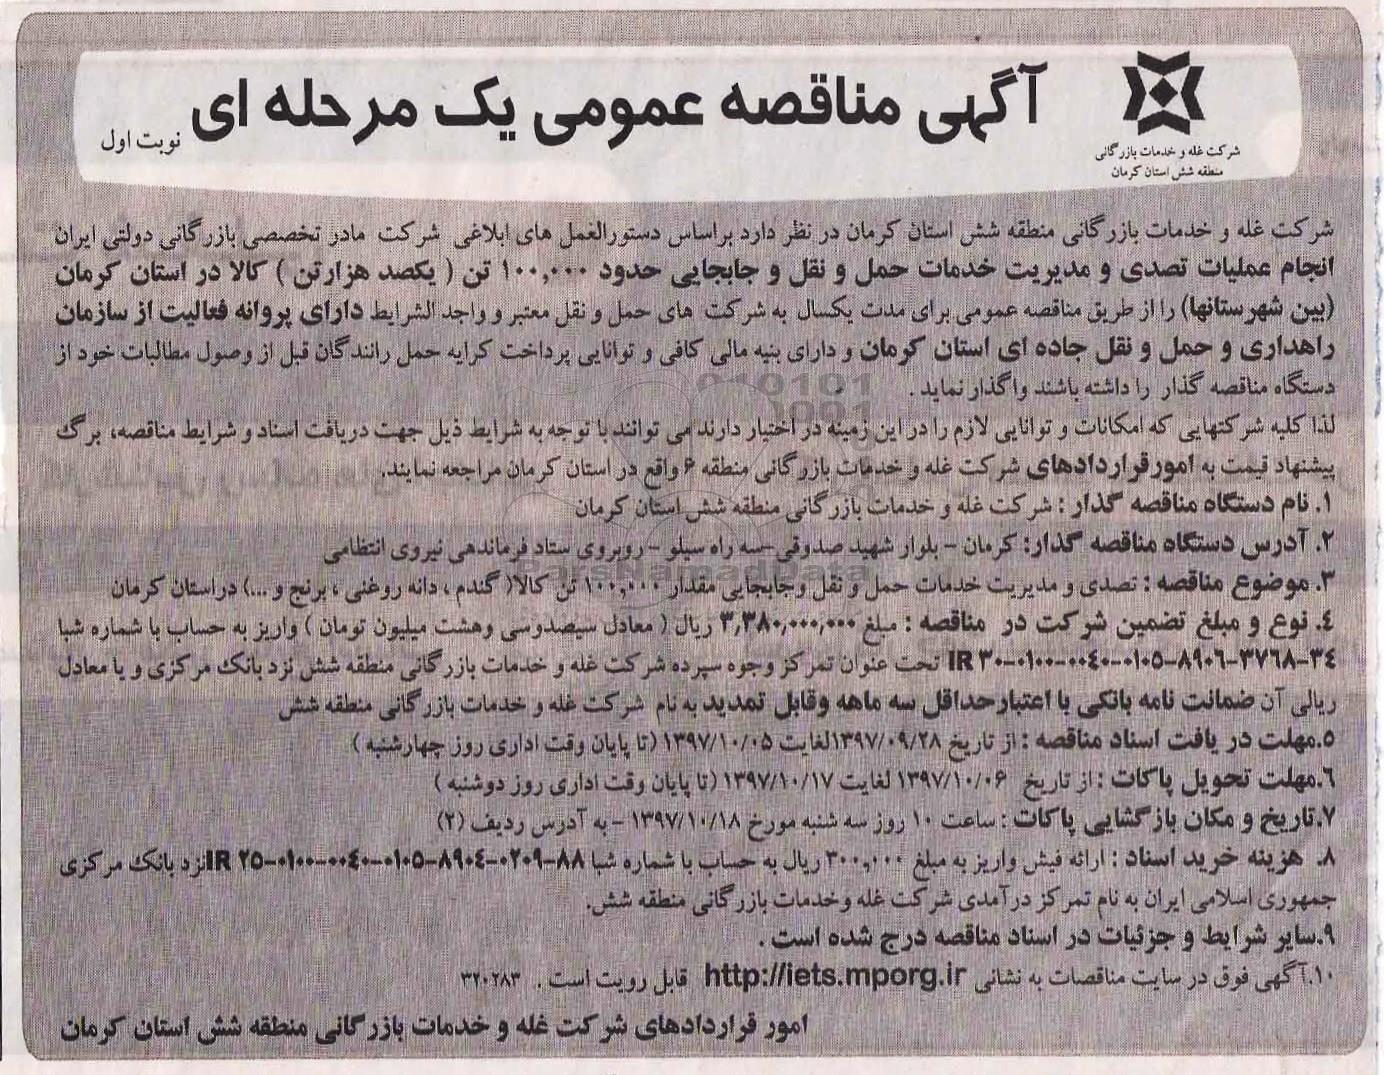 آگهی مناقصه عمومی یک مرحله ای
نوبت اول
شرکت غله و خدمات بازرگانی
منطقه شش استان کرمان
شرکت غله و خدمات بازرگانی منطقه شش استان کرمان در نظر دارد براساس دستورالعمل های ابلاغی شرکت مادر تخصصی بازرگانی دولتی ایران
انجام عملیات تصدی و مدیریت خدمات حمل و نقل و جابجایی حدود ۱۰۰,۰۰۰ تن ( یکصد هزارتن ) کالا در استان کرمان
(بین شهرستانها) را از طریق مناقصه عمومی برای مدت یکسال به شرکت های حمل و نقل معتبر و واجد الشرایط دارای پروانه فعالیت از سازمان
راهداری و حمل و نقل جاده ای استان کرمان و دارای بنیه مالی کافی و توانایی پرداخت کرایه حمل رانندگان قبل از وصول مطالبات خود از
دستگاه مناقصه گذار را داشته باشند واگذار نماید .
لذا کلیه شرکتهایی که امکانات و توانایی لازم را در این زمینه در اختیار دارند می توانند با توجه به شرایط ذیل جهت دریافت اسناد و شرایط مناقصه، برگ
پیشنهاد قیمت به امور قراردادهای شرکت غله و خدمات بازرگانی منطقه ۶ واقع در استان کرمان مراجعه نمایند.
۱. نام دستگاه مناقصه گذار : شرکت غله و خدمات بازرگانی منطقه شش استان کرمان
۲. آدرس دستگاه مناقصه گذار: کرمان - بلوار شهید صدوقی-سه راه سیلو - روبروی ستاد فرماندهی نیروی انتظامی
۳. موضوع مناقصه : تصدی و مدیریت خدمات حمل و نقل و جابجایی مقدار ۱۰۰,۰۰۰ تن کالا( گندم ، دانه روغنی ، برنج و ...) دراستان کرمان
۴. نوع و مبلغ تضمین شرکت در مناقصه : مبلغ ۳,۳۸۰,۰۰۰,۰۰۰ ریال ( معادل سیصدوسی وهشت میلیون تومان ) واریز به حساب با شماره شبا
IR ۳۰-۰۱۰۰-۰۰۴۰-۰۱۰۵-۸۹۰۶-۳۷۶۸-۳۴ تحت عنوان تمرکز وجوه سپرده شرکت غله و خدمات بازرگانی منطقه شش نزد بانک مرکزی و یا معادل
ریالی آن ضمانت نامه بانکی با اعتبارحداقل سه ماهه وقابل تمدید به نام شرکت غله و خدمات بازرگانی منطقه شش
۵.مهلت دریافت اسناد مناقصه : از تاریخ ۱۳۹۷/۰۹/۲۸لغایت ۱۳۹۷/۱۰/۰۵ (تا پایان وقت اداری روز چهارشنبه )
۶.مهلت تحویل پاکات : از تاریخ ۱۳۹۷/۱۰/۰۶ لغایت ۱۳۹۷/۱۰/۱۷ (تا پایان وقت اداری روز دوشنبه )
۷.تاریخ و مکان بازگشایی پاکات : ساعت ۱۰ روز سه شنبه مورخ ۱۳۹۷/۱۰/۱۸ - به آدرس ردیف (۲)
۸. هزینه خرید اسناد : ارائه فیش واریز به مبلغ ۳۰۰,۰۰۰ ریال به حساب با شماره شبا IR ۲۵-۰۱۰۰-۰۰۴۰-۰۱۰۵-۸۹۰۴-۰۲۰۹-۸۸نزد بانک مرکزی
جمهوری اسلامی ایران به نام تمرکز درآمدی شرکت غله وخدمات بازرگانی منطقه شش.
۹.سایر شرایط و جزئیات در اسناد مناقصه درج شده است .
۱۰.آگهی فوق در سایت مناقصات به نشانی http://iets.mporg.ir قابل رویت است . ۳۲۰۲۸۳
امور قراردادهای شرکت غله و خدمات بازرگانی منطقه شش استان کرمان
ParsNamadData